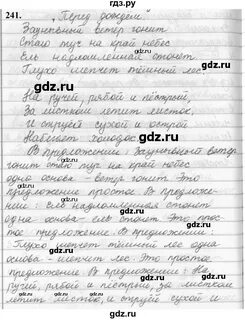 гдз.ру
241. „Перед дождём"
Заунывный ветер гонит
Стаю туч на край небес
Ель надломленная стонет
Глухо шепчет тёмный лес.
На ручей, рябой и пёстрый,
За листком летит листок,
И струёй сухой и острой
Набегает холодок.
В предложении: Заунывный ветер
гонит стаю туч на край небес
одна основа - ветер гонит. Это
предложение простое. В предложе-
нии: ель надломленная стонет
одна основа - ель стонет. Это прос-
тое предложение. В предложении:
Глухо шепчет тёмный лес одна
основа - шепчет лес. Это простое
предложение. В предложении: На
ручей, рябой и пёстрый, за листком
летит листок, и струёй сухой и